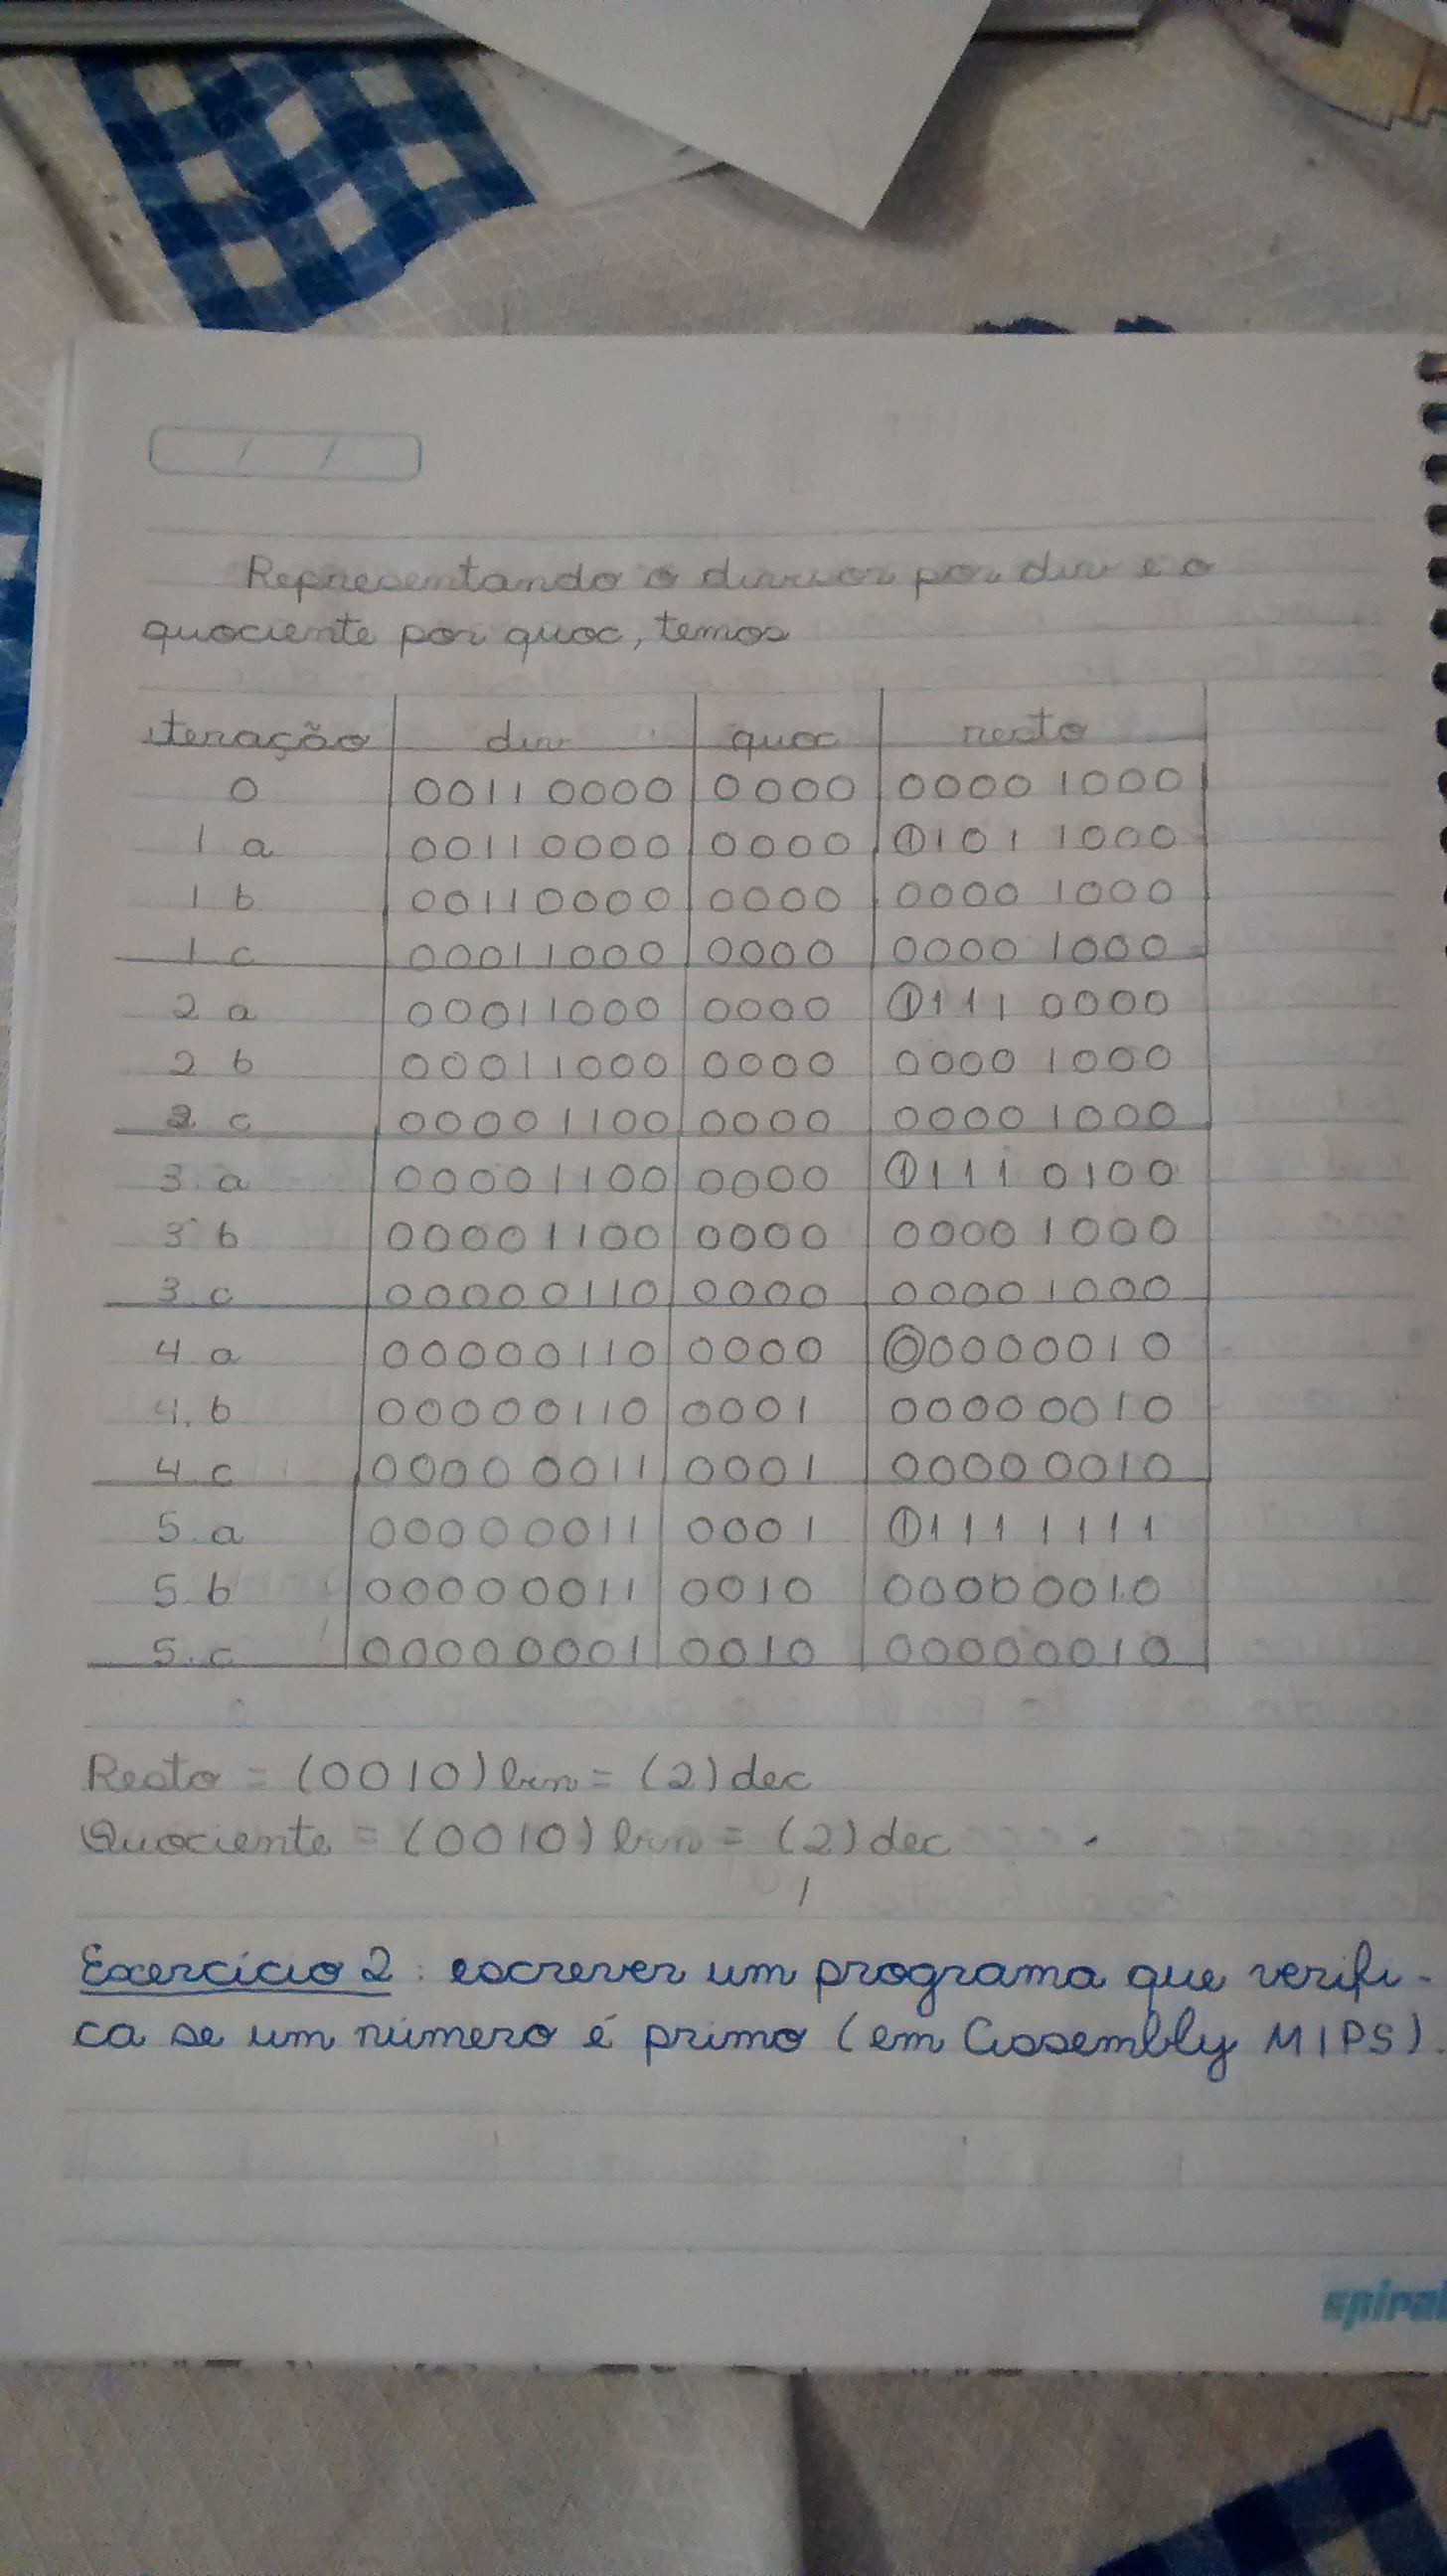 / /
Representando o divisor por div e o
quociente por quoc, temos
iteração div quoc resto
0 00110000 0000 0000 1000
1 a 00110000 0000 1101 1000
1 b 00110000 0000 0000 1000
1 c 00011000 0000 0000 1000
2 a 00011000 0000 1111 0000
2 b 00011000 0000 0000 1000
2 c 00001100 0000 0000 1000
3.a 00001100 0000 1111 0100
3 b 00001100 0000 0000 1000
3.c 00000110 0000 0000 1000
4 a 00000110 0000 00000010
4.b 00000110 0001 00000010
4.c 00000011 0001 00000010
5.a 00000011 0001 11111111
5.b 00000011 0010 00000010
5.c 00000001 0010 00000010
Resto = (0010) bin = (2) dec
Quociente = (0010) bin = (2) dec
Exercício 2: escrever um programa que verifi-
ca se um número é primo (em Assembly MIPS).
spiral